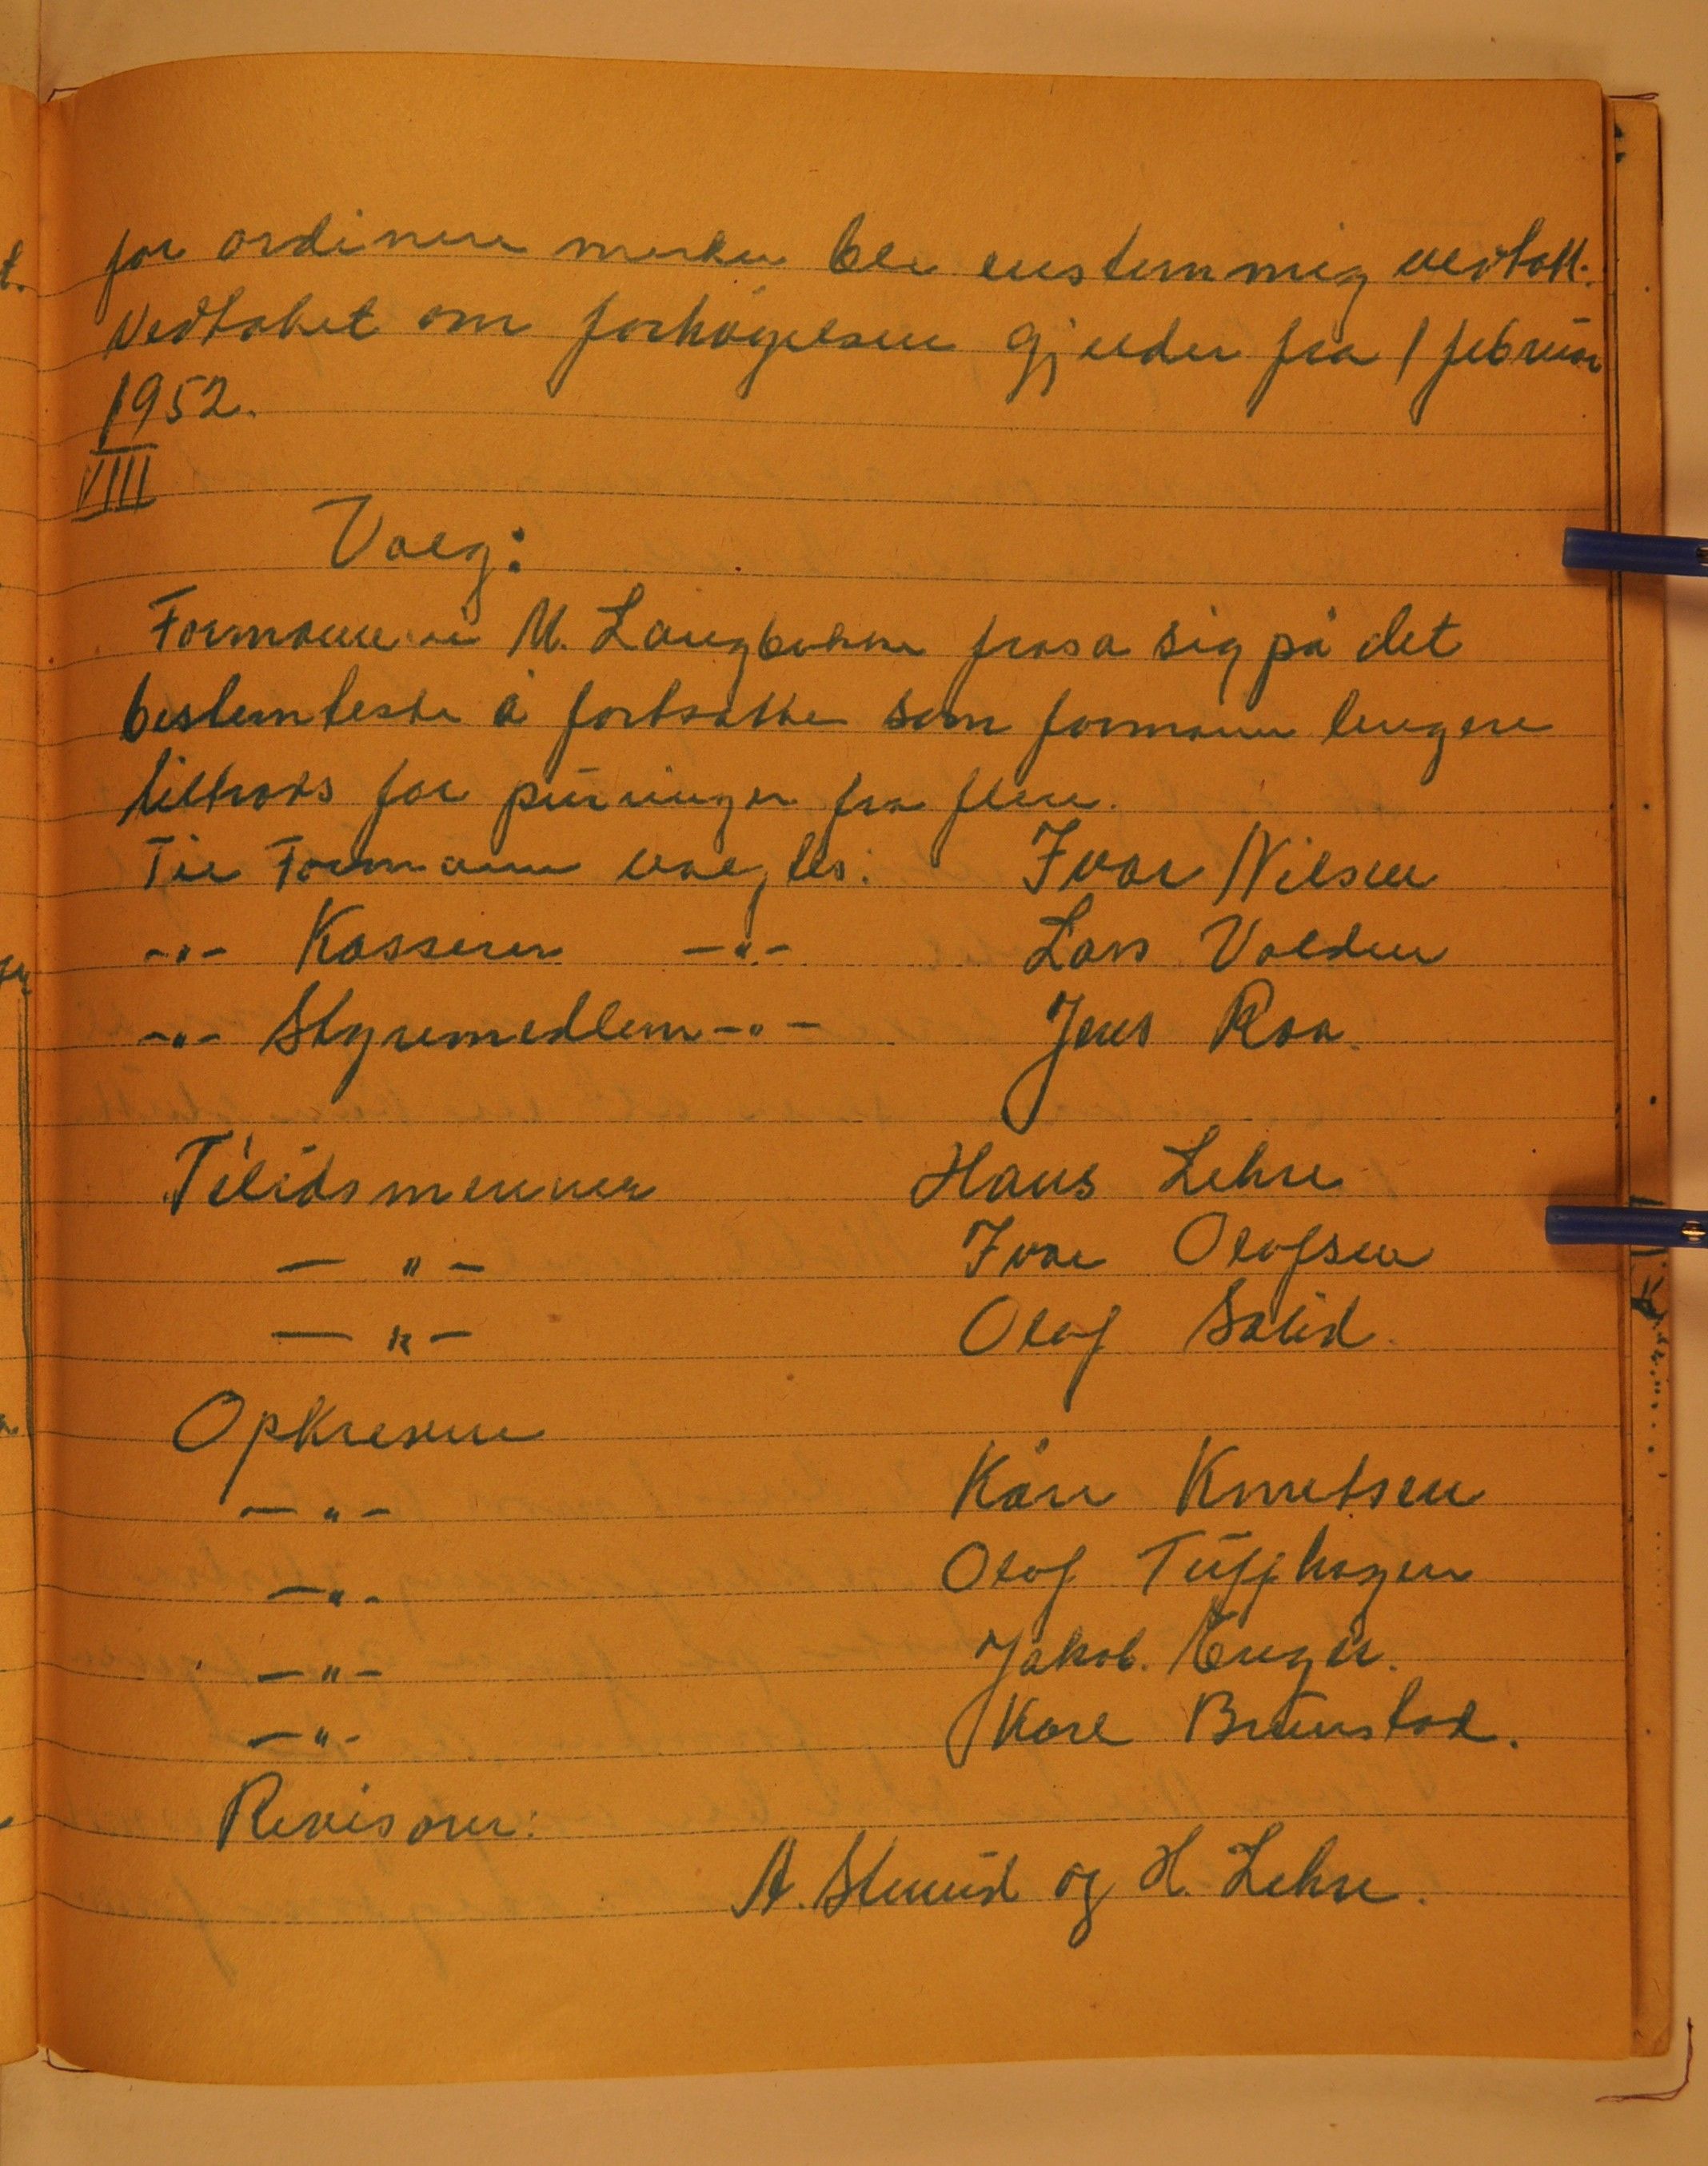 for ordinere merker ble enstemmig vedtatt.
Vedtaket om forhøgelsen gjelder fra 1 februar
1952.
VIII
Valg:
Formannen M. Langbakke frasa sig på det
bestemteste å fortsette som formann lengere
tiltross for purringer fra flere.
Til Formann valgtes: Ivar Nilsen
-"- Kasserer -"- Lars Volden
-"- Styremedlem -"- Jens Roa.
Tilidsmenner Hans Lehre
- " - Ivar Olafsen
- " - Olaf Solid.
Opkrevere
- " - Kåre Knutsen
- " - Olaf Tuffhagen
- " - Jakob. Enger.
- " - Karl Brunstad.
Revisorer:
A. og H. Lehre.